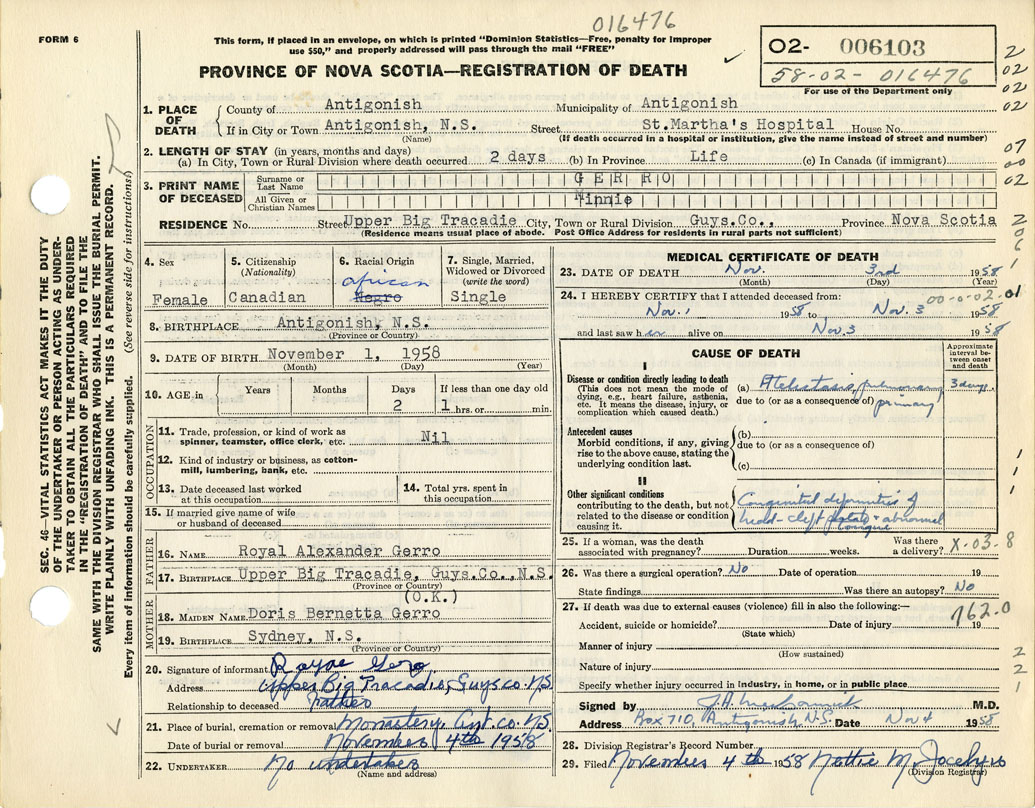 016476
FORM 6
This form, if placed in an envelope, on which is printed "Dominion Statistics—Free, penalty for improper
use $50," and properly addressed will pass through the mail "FREE"
O2- 006103
58-02- 016476
For use of the Department only
PROVINCE OF NOVA SCOTIA—REGISTRATION OF DEATH
1. PLACE OF DEATH
County of Antigonish Municipality of Antigonish
If in City or Town Antigonish, N.S. Street St.Martha's Hospital House No.
(Name) (If death occurred in a hospital or institution, give the name instead of street and number)
2. LENGTH OF STAY (in years, months and days)
(a) In City, Town or Rural Division where death occurred 2 days (b) In Province Life (c) In Canada (if immigrant)
3. PRINT NAME OF DECEASED
Surname or Last Name GERRO
All Given or Christian Names Minnie
RESIDENCE No. Street Upper Big Tracadie City, Town or Rural Division Guys.Co., Province Nova Scotia
(Residence means usual place of abode. Post Office Address for residents in rural parts not sufficient)
2
02
02
02
07
00
02
2
0
6
1
01
1
1
1
8
2
2
1
SEC. 46—VITAL STATISTICS ACT MAKES IT THE DUTY
OF THE UNDERTAKER OR PERSON ACTING AS UNDER-
TAKER TO OBTAIN ALL THE PARTICULARS REQUIRED
IN THE "REGISTRATION OF DEATH" AND TO FILE THE
SAME WITH THE DIVISION REGISTRAR WHO SHALL ISSUE THE BURIAL PERMIT.
WRITE PLAINLY WITH UNFADING INK. THIS IS A PERMANENT RECORD.
Every item of information should be carefully supplied. (See reverse side for instructions.)
4. Sex
Female
5. Citizenship
(Nationality)
Canadian
6. Racial Origin
african
Negro
7. Single, Married,
Widowed or Divorced
(write the word)
Single
8. BIRTHPLACE Antigonish, N.S.
(Province or Country)
9. DATE OF BIRTH November 1, 1958
(Month) (Day) (Year)
10. AGE in Years Months Days If less than one day old
2 1 hrs. or min.
OCCUPATION
11. Trade, profession, or kind of work as
spinner, teamster, office clerk, etc. Nil
12. Kind of industry or business, as cotton-
mill, lumbering, bank, etc.
13. Date deceased last worked
at this occupation
14. Total yrs. spent in
this occupation
15. If married give name of wife
or husband of deceased
FATHER
16. NAME Royal Alexander Gerro
17. BIRTHPLACE Upper Big Tracadie, Guys.Co.,N.S.
(Province or Country)
MOTHER
(O.K.)
18. MAIDEN NAME Doris Bernetta Gerro
19. BIRTHPLACE Sydney, N.S.
(Province or Country)
20. Signature of informant
Address Upper Big Tracadie, Guys co N.S.
Relationship to deceased father
21. Place of burial, cremation or removal Monastery, Ant. co. N.S.
Date of burial or removal November 4th 1958
22. UNDERTAKER No undertaker
(Name and address)
MEDICAL CERTIFICATE OF DEATH
23. DATE OF DEATH Nov. 3rd 1958
(Month) (Day) (Year)
24. I HEREBY CERTIFY that I attended deceased from: 00-0-02-
Nov. 1 1958 to Nov. 3 1958
and last saw her alive on Nov. 3 1958
CAUSE OF DEATH
Approximate
interval be-
tween onset
and death
I
Disease or condition directly leading to death
(This does not mean the mode of
dying, e.g., heart failure, asthenia,
etc. It means the disease, injury, or
complication which caused death.)
(a) Atelectasis, pulmonary 3 days
due to (or as a consequence of) primary
Antecedent causes
Morbid conditions, if any, giving
rise to the above cause, stating the
underlying condition last.
(b)
due to (or as a consequence of)
(c)
II
Other significant conditions
contributing to the death, but not
related to the disease or condition
causing it.
Congenital deformities of
head - cleft palate & abnormal
tongue
25. If a woman, was the death
associated with pregnancy? Duration weeks. Was there
a delivery? X-03-
26. Was there a surgical operation? No Date of operation 19
State findings Was there an autopsy? No
27. If death was due to external causes (violence) fill in also the following:— 762.0
Accident, suicide or homicide? Date of injury 19
(State which)
Manner of injury
(How sustained)
Nature of injury
Specify whether injury occurred in industry, in home, or in public place
Signed by M.D.
Address Box 710, Antigonish, N.S. Date Nov 4 1958
28. Division Registrar's Record Number
29. Filed November 4th 1958 Nettie M. Jocelyn
(Division Registrar)